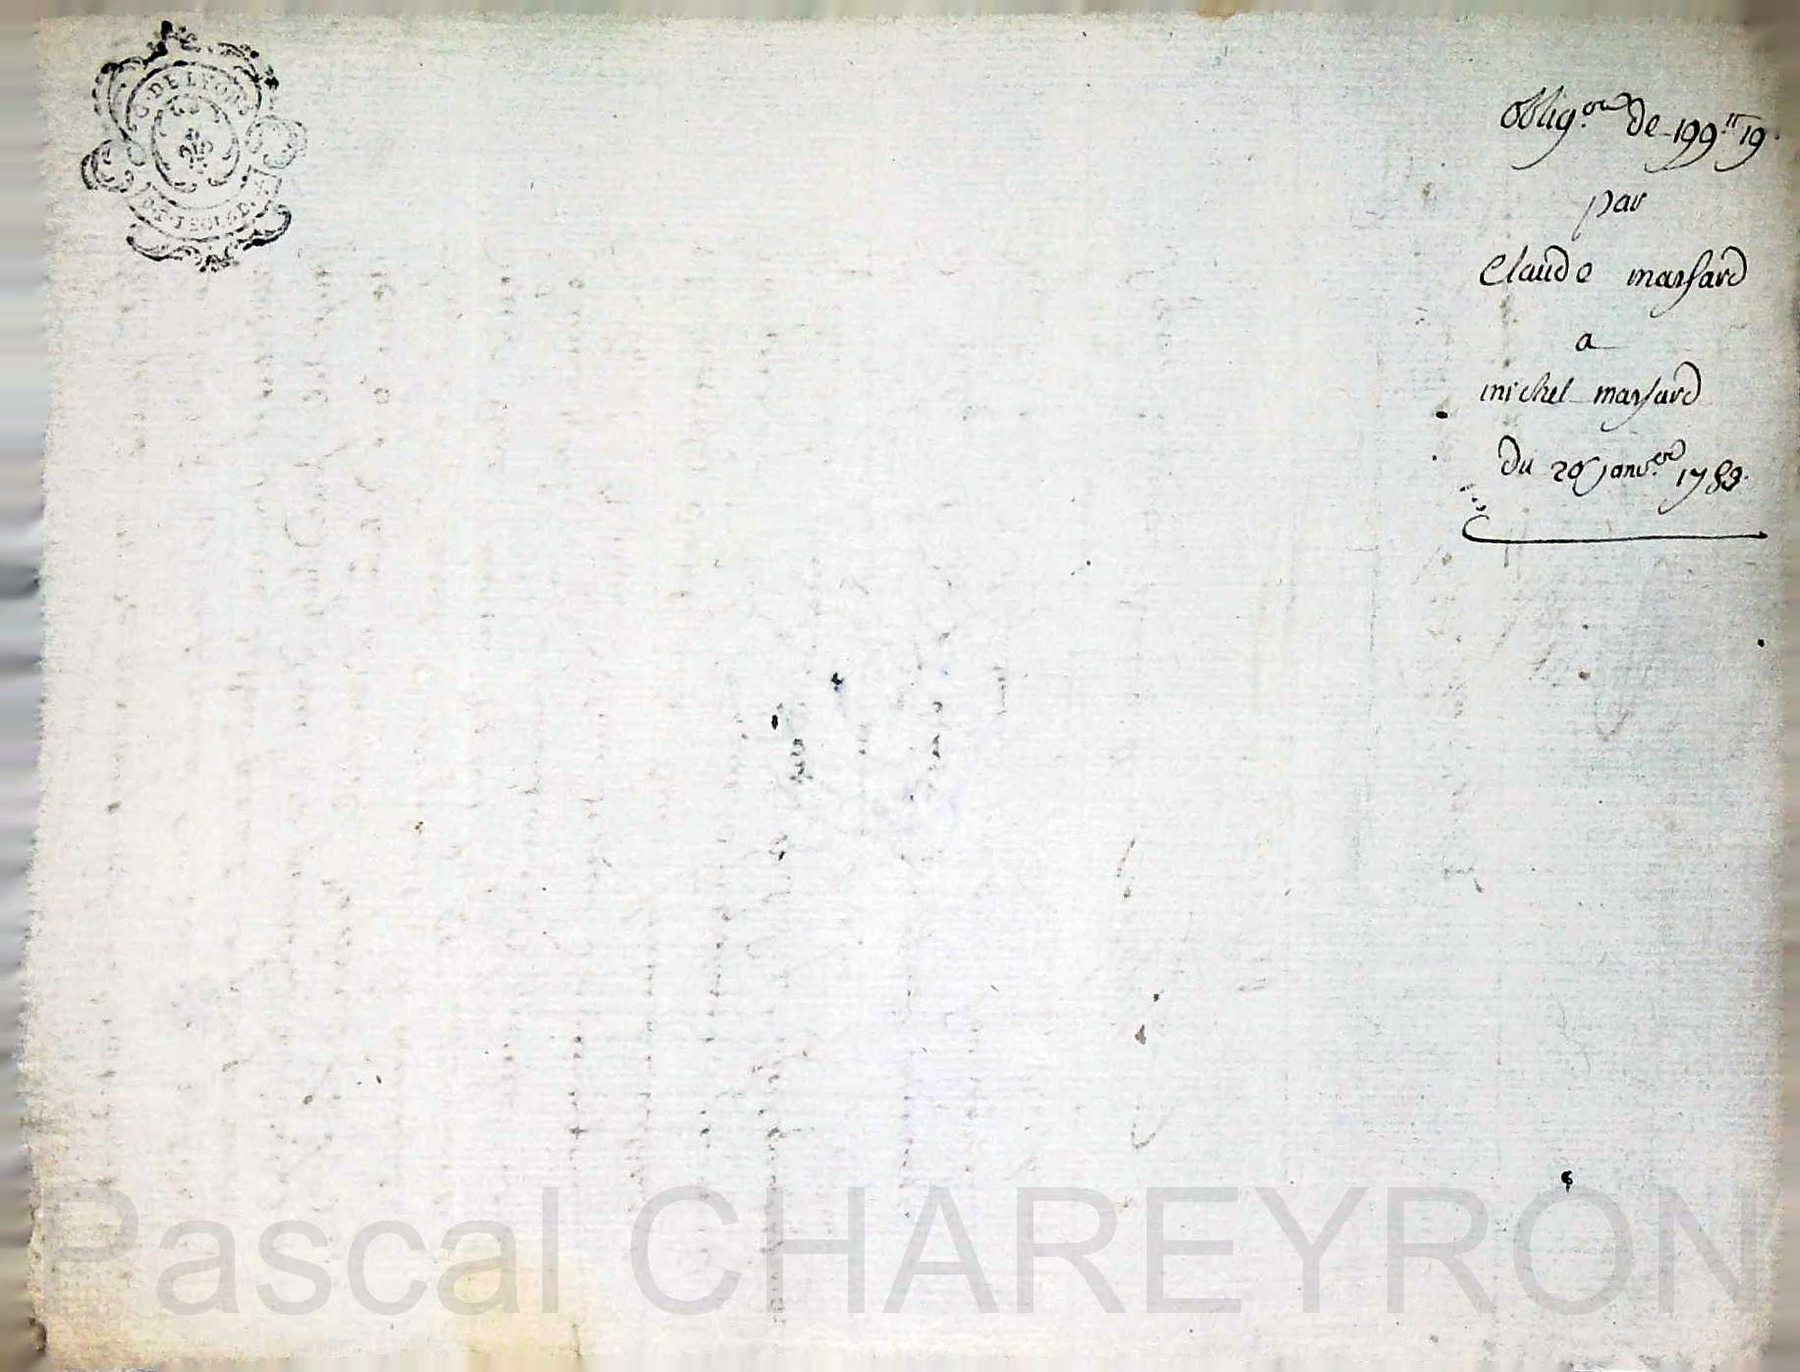 G. DE LYON
obligon de 199tt 19
par
Claude massard
a
michel massard
du 20 janver 1783.
Pascal CHAREYRON